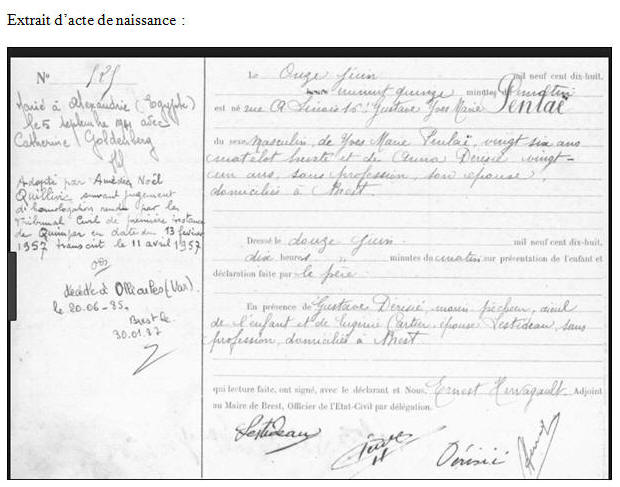 Extrait d'acte de naissance :
N° 525
Marié à Alexandrie (Egypte)
le 5 septembre avec
Catherine Goldenberg
Adopté par Amédée Noël
Quillivic, suivant jugement
d'homologation rendu par le
Tribunal Civil de première instance
de Quimper en date du 13 février
1957 transcrit le 11 avril 1957
décédé à Ollioules (Var)
le 20.06-85.
Brest le
30.01.87
Le Onze Juin mil neuf cent dix-huit,
minuit quinze minutes du matin
est né rue 15: Gustave Yves Marie Penlaë
du sexe masculin, de Yves Marie Penlaë, vingt six ans
matelot breveté et de Anna Dérisié vingt-
un ans, sans profession, son épouse,
domiciliés à Brest.
Dressé le douze Juin mil neuf cent dix-huit,
dix heures " minutes du matin sur présentation de l'enfant et
déclaration faite par le père
En présence de Gustave Dérisié, marin pêcheur, aïeul
de l'enfant et de Eugénie Cartier, épouse Lestideau, sans
profession, domiciliés à Brest
qui lecture faite, ont signé, avec le déclarant et Nous, Ernest Hervagault, Adjoint
au Maire de Brest, Officier de l'Etat-Civil par délégation.
Lestideau Dérisié